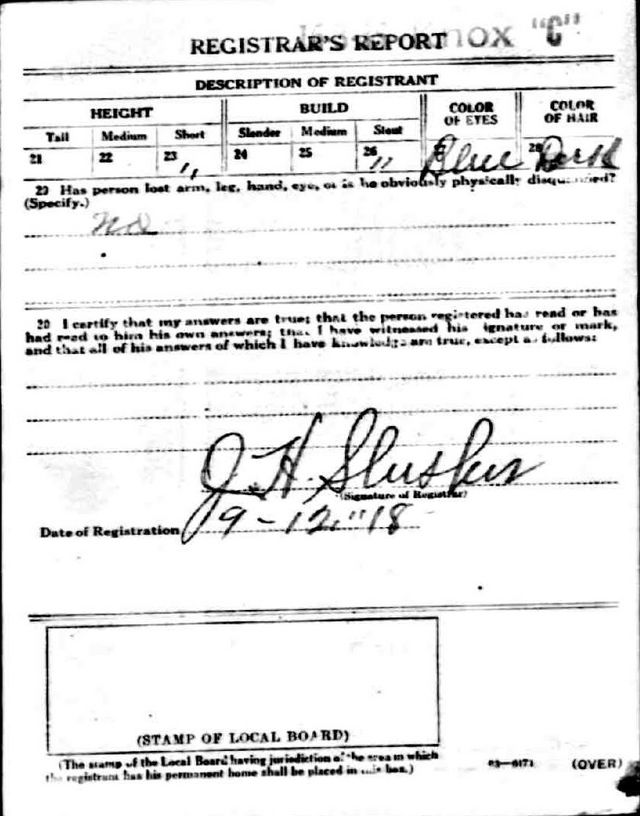 Knox "C"
REGISTRAR'S REPORT
DESCRIPTION OF REGISTRANT
HEIGHT BUILD COLOR OF EYES COLOR OF HAIR
Tall Medium Short Slender Medium Stout
21 22 23 " 24 25 26 " Blue 28 Dark
29 Has person lost arm, leg, hand, eye, or is he obviously physically disqualified?
(Specify.)
No
30 I certify that my answers are true; that the person registered has read or has
had read to him his own answers; that I have witnessed his signature or mark,
and that all of his answers of which I have knowledge are true, except as follows:
J. H. Slusher
(Signature of Registrar)
Date of Registration 9-12-"18
(STAMP OF LOCAL BOARD)
(The stamp of the Local Board having jurisdiction of the area in which
the registrant has his permanent home shall be placed in this box.)
03—6171 (OVER)